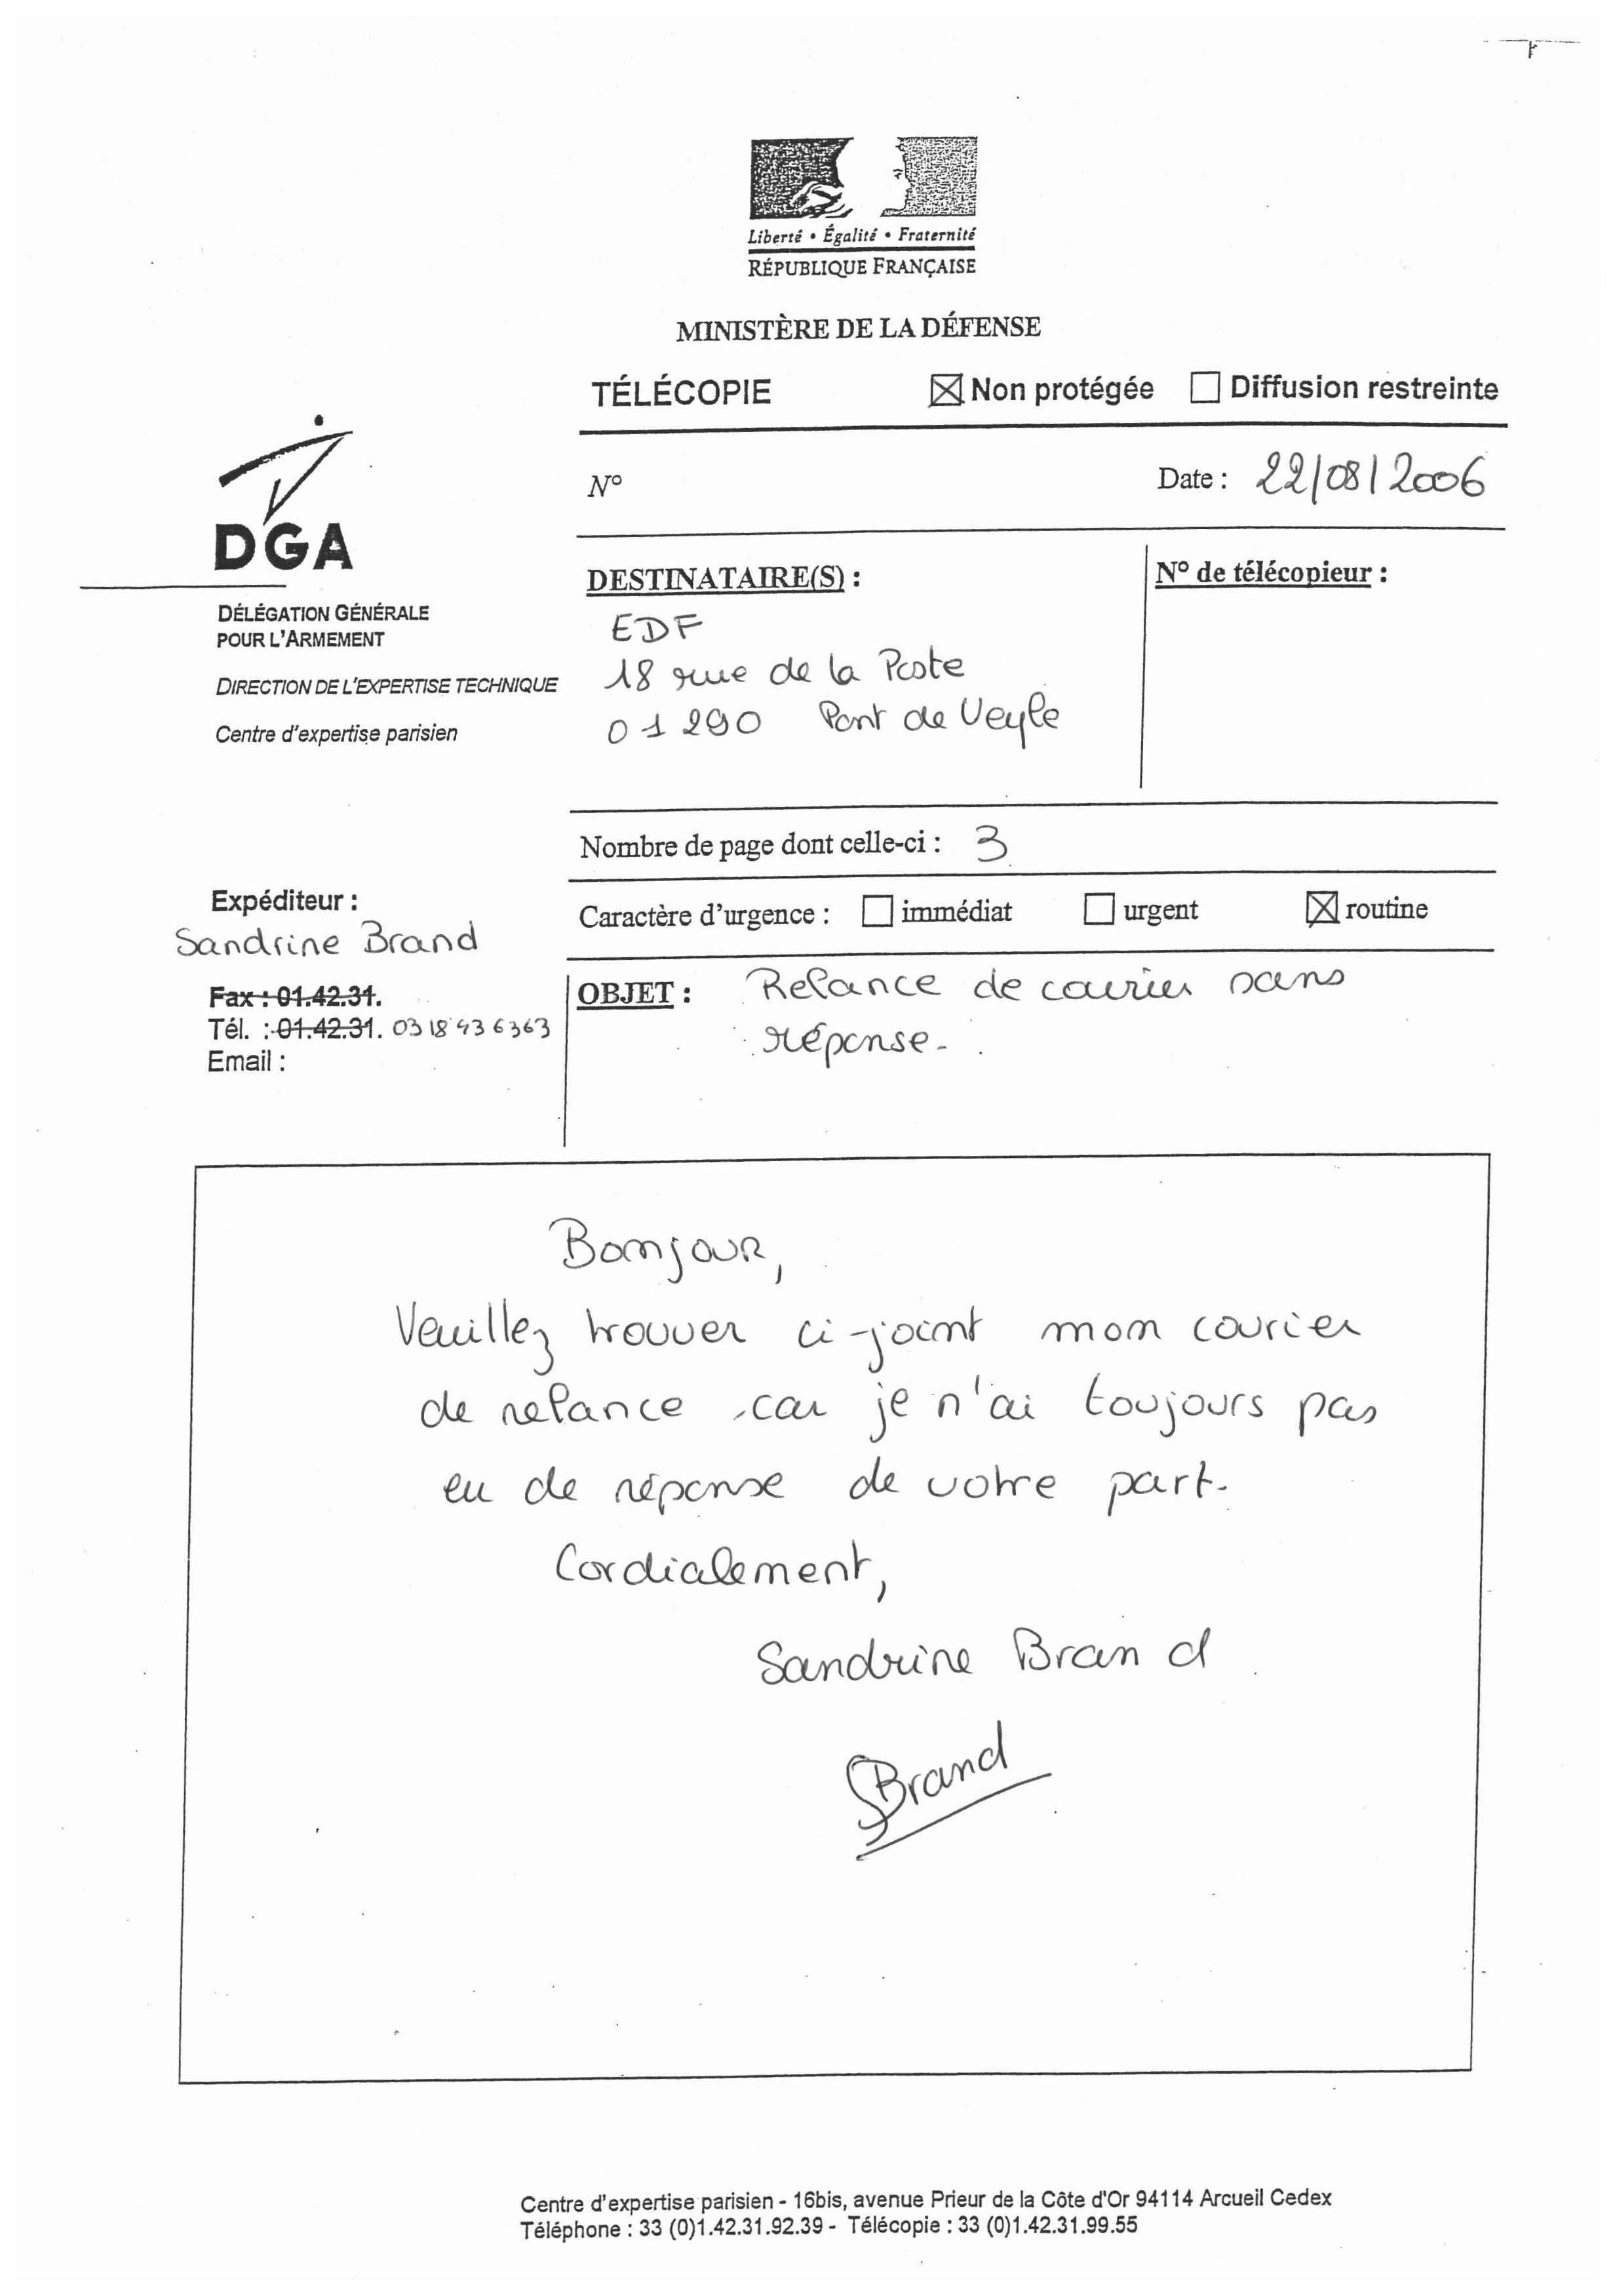 Liberté • Égalité • Fraternité
RÉPUBLIQUE FRANÇAISE
MINISTÈRE DE LA DÉFENSE
TÉLÉCOPIE ☒ Non protégée ☐ Diffusion restreinte
N° Date : 22/08/2006
DGA
DÉLÉGATION GÉNÉRALE
POUR L'ARMEMENT
DIRECTION DE L'EXPERTISE TECHNIQUE
Centre d'expertise parisien
DESTINATAIRE(S) :
EDF
18 rue de la Poste
01290 Pont de Veyle
N° de télécopieur :
Nombre de page dont celle-ci : 3
Expéditeur :
Sandrine Brand
Fax : 01.42.31.
Tél. : 01.42.31. 0318436363
Email :
Caractère d'urgence : ☐ immédiat ☐ urgent ☒ routine
OBJET : Relance de courier sans
réponse.
Bonjour,
Veuillez trouver ci-joint mon courier
de relance, car je n'ai toujours pas
eu de réponse de votre part.
Cordialement,
Sandrine Brand
SBrand
Centre d'expertise parisien - 16bis, avenue Prieur de la Côte d'Or 94114 Arcueil Cedex
Téléphone : 33 (0)1.42.31.92.39 - Télécopie : 33 (0)1.42.31.99.55